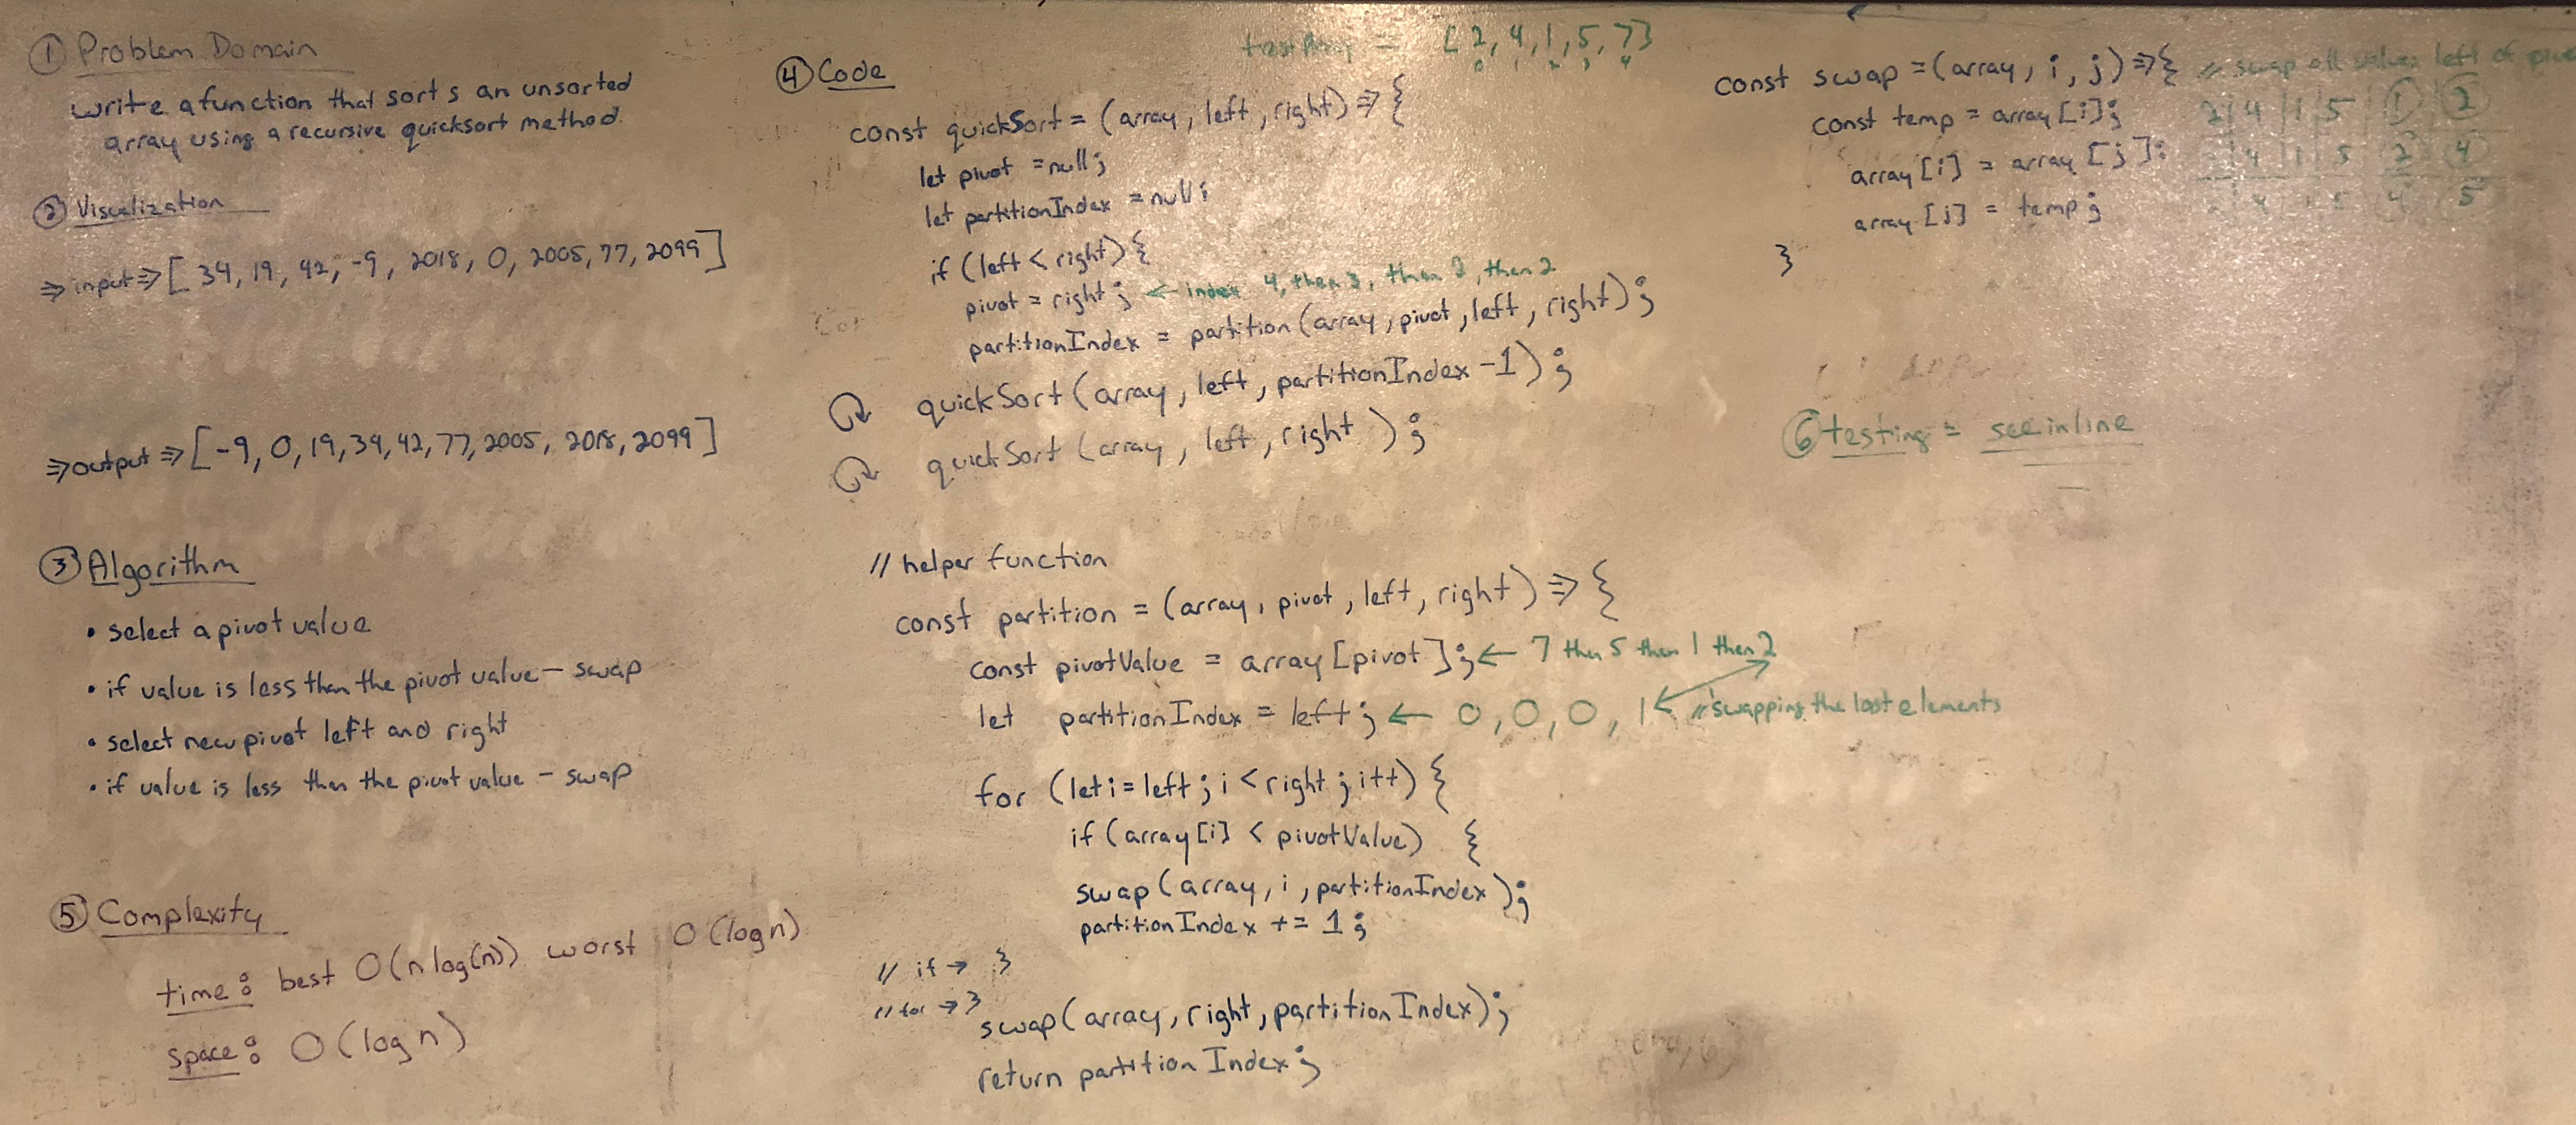 ① Problem Domain
write a function that sorts an unsorted
array using a recursive quicksort method.
② Visualization
⇒ input ⇒ [ 34, 19, 42, -9, 2018, 0, 2005, 77, 2099 ]
⇒ output ⇒ [ -9, 0, 19, 34, 42, 77, 2005, 2018, 2099 ]
③ Algorithm
• select a pivot value
• if value is less than the pivot value - swap
• select new pivot left and right
• if value is less than the pivot value - swap
⑤ Complexity
time: best O(n log(n)) worst O(log n)
space: O(log n)
testArray = [2, 4, 1, 5, 7]
0 1 2 3 4
④ Code
const quickSort = (array, left, right) => {
let pivot = null;
let partitionIndex = null;
if (left < right) {
pivot = right; ← index 4, then 3, then 2, then 2
partitionIndex = partition (array, pivot, left, right);
quickSort (array, left, partitionIndex - 1);
quickSort (array, left, right);
// helper function
const partition = (array, pivot, left, right) => {
const pivotValue = array [pivot]; ← 7 then 5 then 1 then 2
let partitionIndex = left; ← 0, 0, 0, 1 // swapping the last elements
for (let i = left; i < right; i++) {
if (array [i] < pivotValue) {
swap (array, i, partitionIndex);
partitionIndex += 1;
// if → }
// for → }
swap (array, right, partitionIndex);
return partitionIndex;
const swap = (array, i, j) => { // swap all values left of
const temp = array [i];
array [i] = array [j];
array [j] = temp;
}
2 4 1 5 ① ②
4 1 5 2 4
4 5 4 5
⑥ testing = see inline